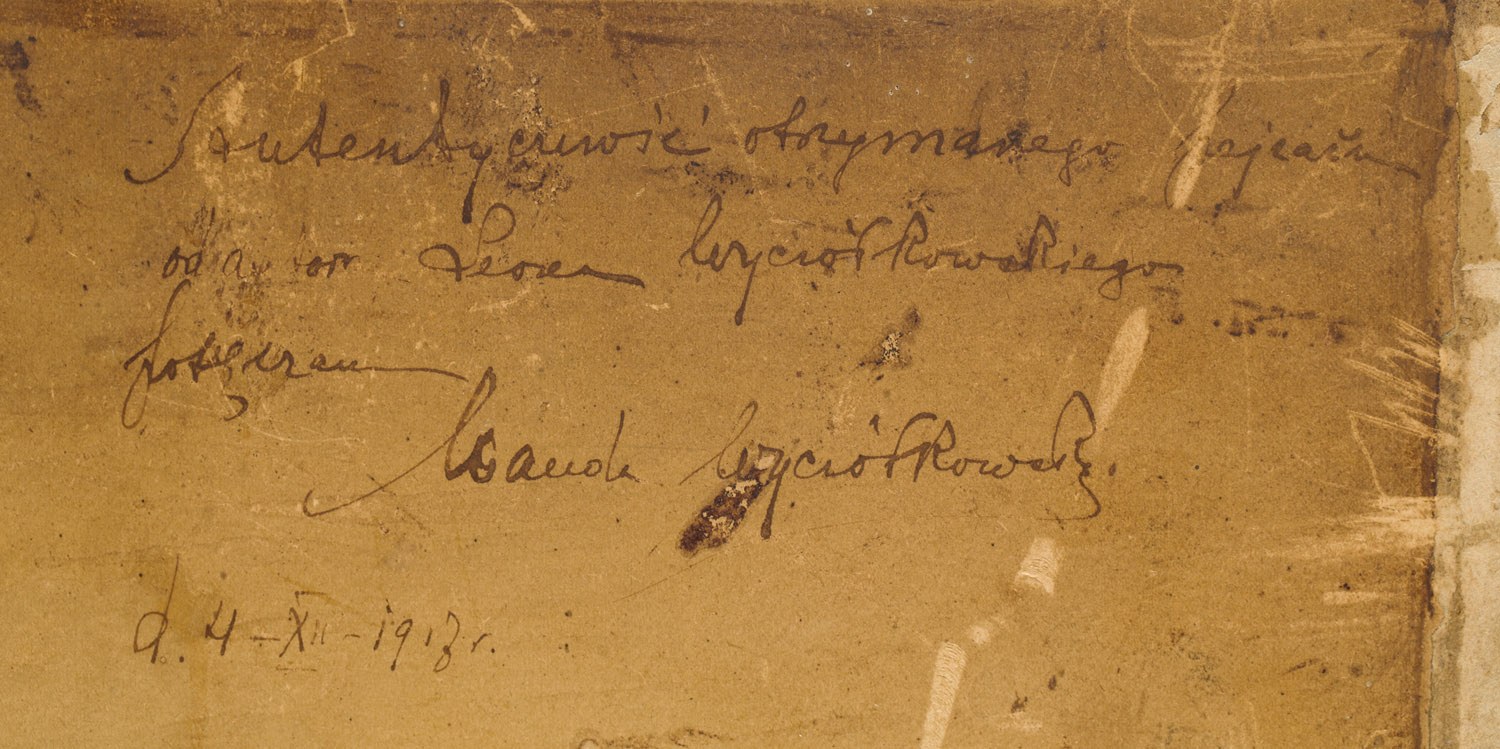 Autentyczność otrzymanego pejzażu
od autora Leona Wyczółkowskiego
Wanda Wyczółkowska.
d. 4-XII-1917 r.